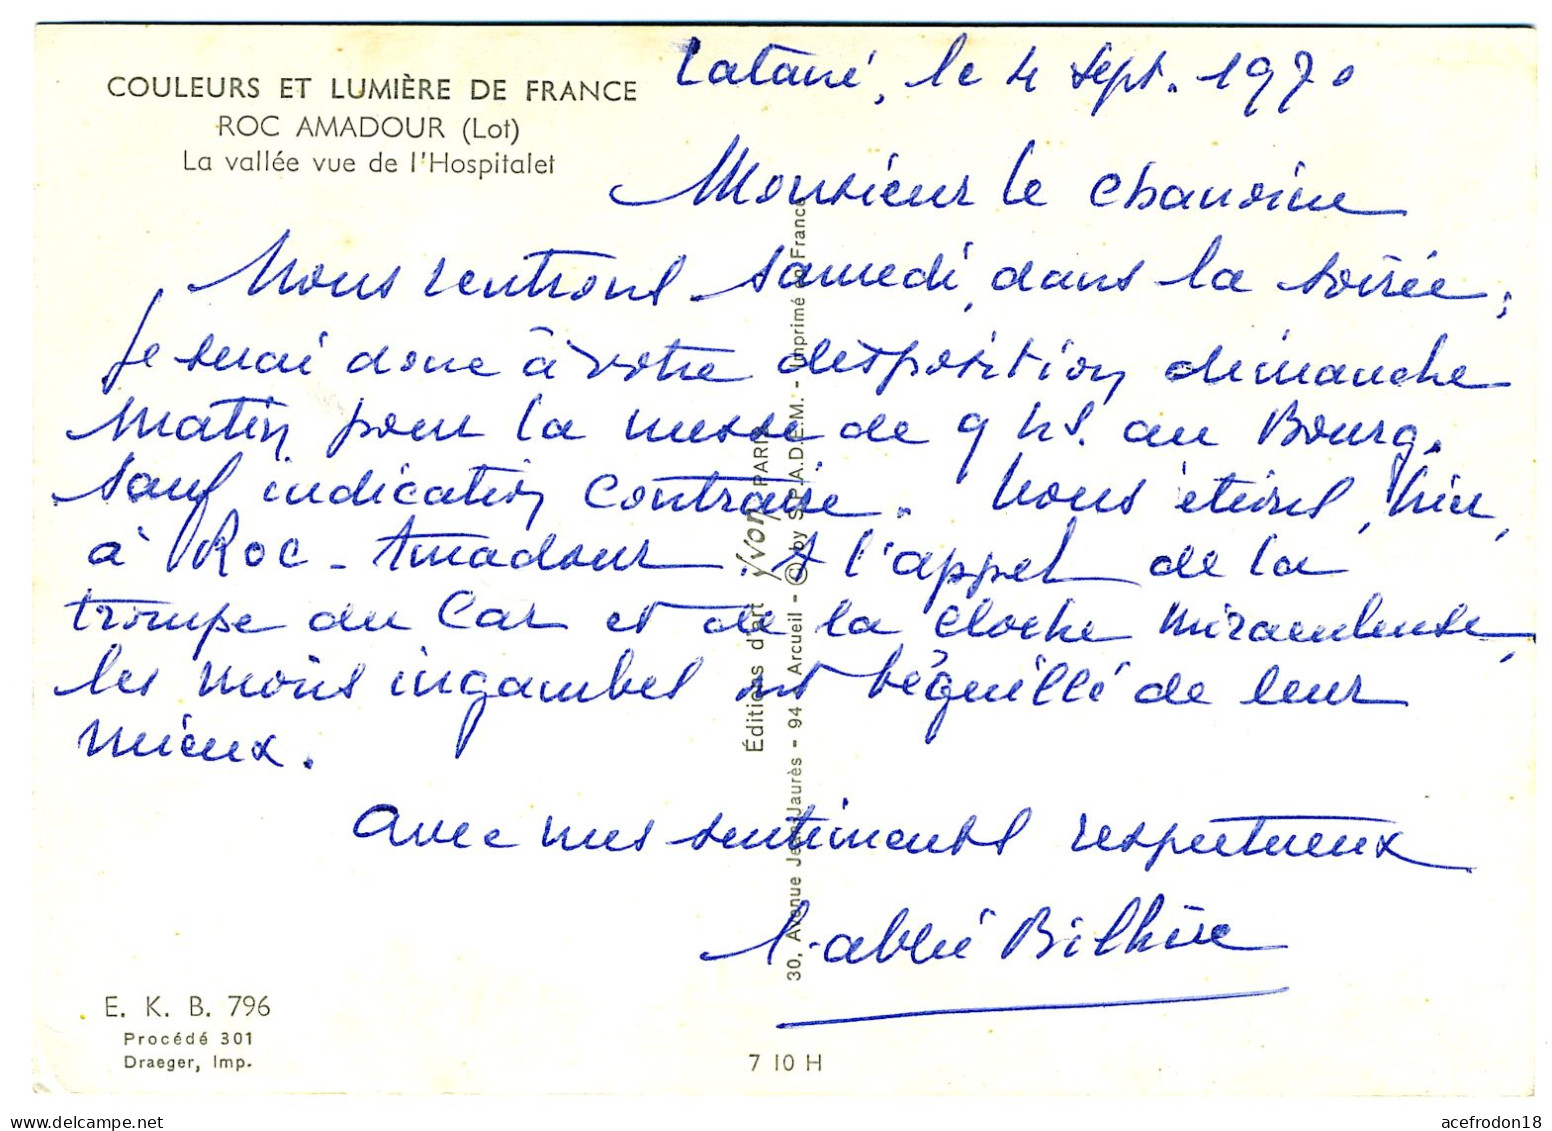 COULEURS ET LUMIÈRE DE FRANCE
ROC AMADOUR (Lot)
La vallée vue de l'Hospitalet
le 4 sept. 1970
Monsieur le chanoine
Nous rentrons samedi, dans la soirée,
Je serai donc à votre disposition dimanche
matin, pour la messe de 9 hs. au Bourg.
sauf indication contraire. Nous étions, hier,
à Roc-Amadour. A l'appel de la
trompe du Car et de la cloche miraculeuse,
les moins ingambes ont béquillé de leur
mieux.
avec mes sentiments respectueux
l'abbé Bilhère
Éditions d'art Yvon PARIS
30, Avenue Jean-Jaurès - 94 Arcueil - © by S.P.A.D.E.M. - Imprimé en France
E. K. B. 796
Procédé 301
Draeger, Imp.
7 10 H
acefrodon18